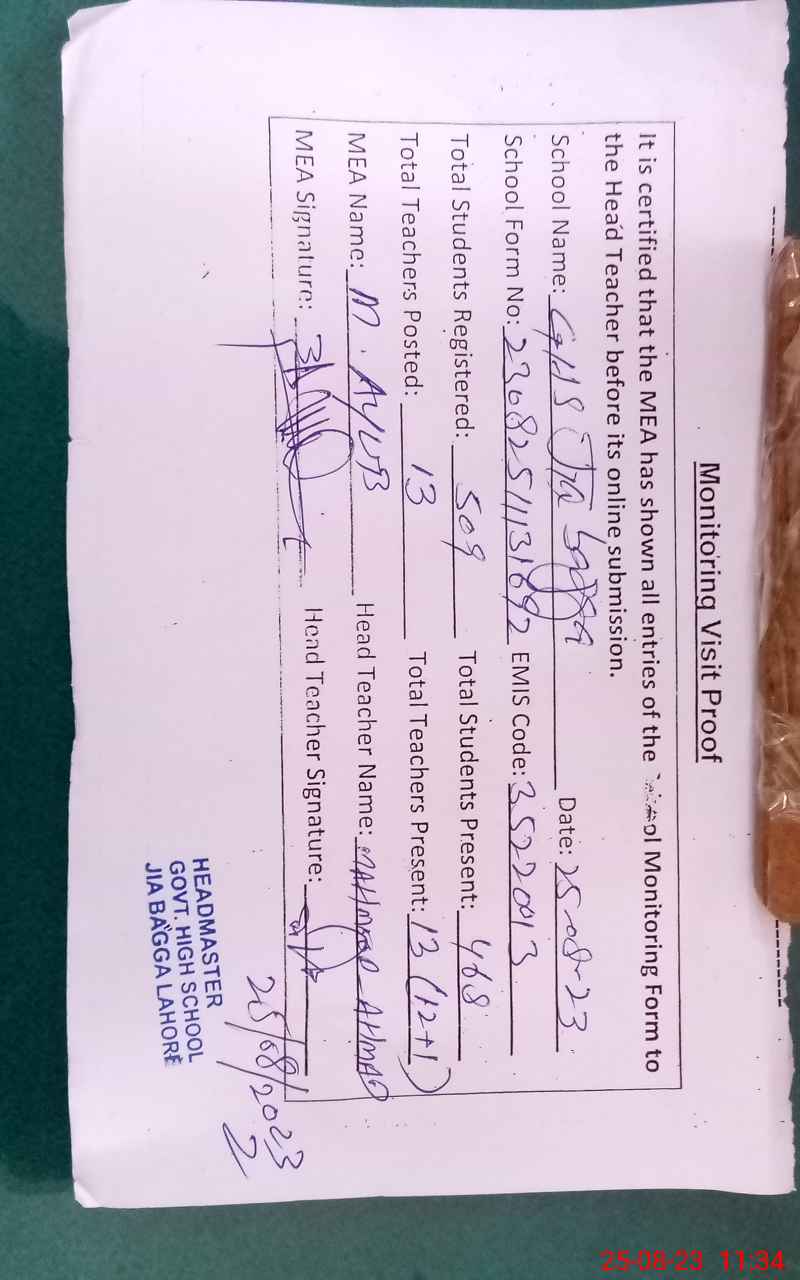 Monitoring Visit Proof
It is certified that the MEA has shown all entries of the School Monitoring Form to
the Head Teacher before its online submission.
School Name: GHS Jia bagga Date: 25-08-23
School Form No: 23082511131692 EMIS Code: 35220013
Total Students Registered: 509 Total Students Present: 468
Total Teachers Posted: 13 Total Teachers Present: 13 (12+1)
MEA Name: M. AYUB Head Teacher Name: MAHMOOD AHMAD
MEA Signature: Head Teacher Signature:
25/08/2023
HEADMASTER
GOVT. HIGH SCHOOL
JIA BAGGA LAHORE
25-08-23 11:34